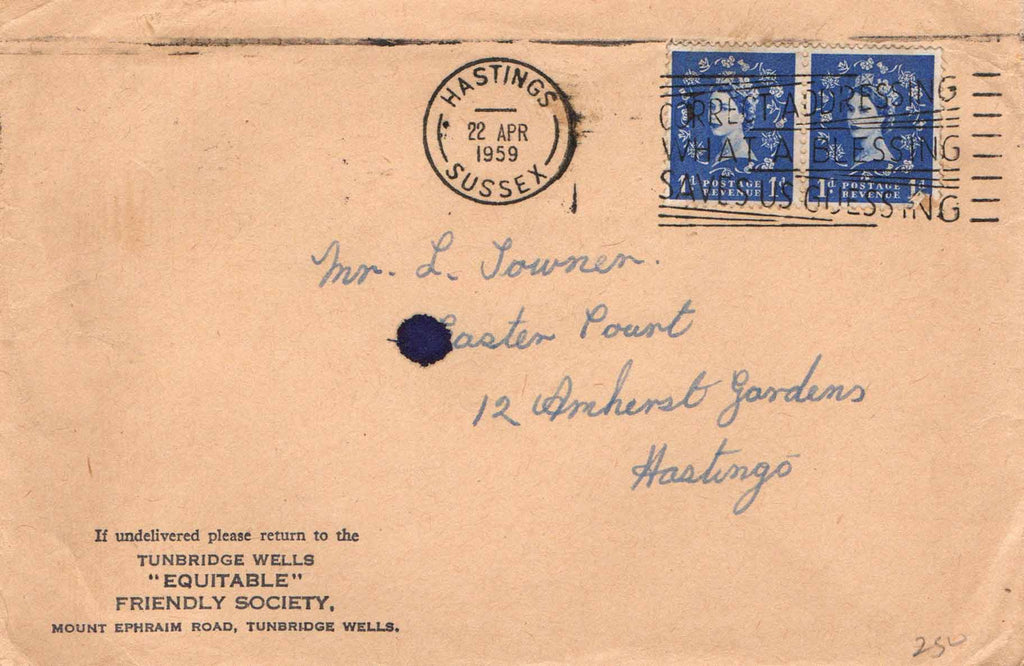 HASTINGS
22 APR
1959
SUSSEX
CORRECT ADDRESSING
WHAT A BLESSING
SAVES US GUESSING
1d POSTAGE 1d
REVENUE
1d POSTAGE 1d
REVENUE
Mr. L. Towner.
Court
12 Amherst Gardens
Hastings
If undelivered please return to the
TUNBRIDGE WELLS
"EQUITABLE"
FRIENDLY SOCIETY,
MOUNT EPHRAIM ROAD, TUNBRIDGE WELLS.